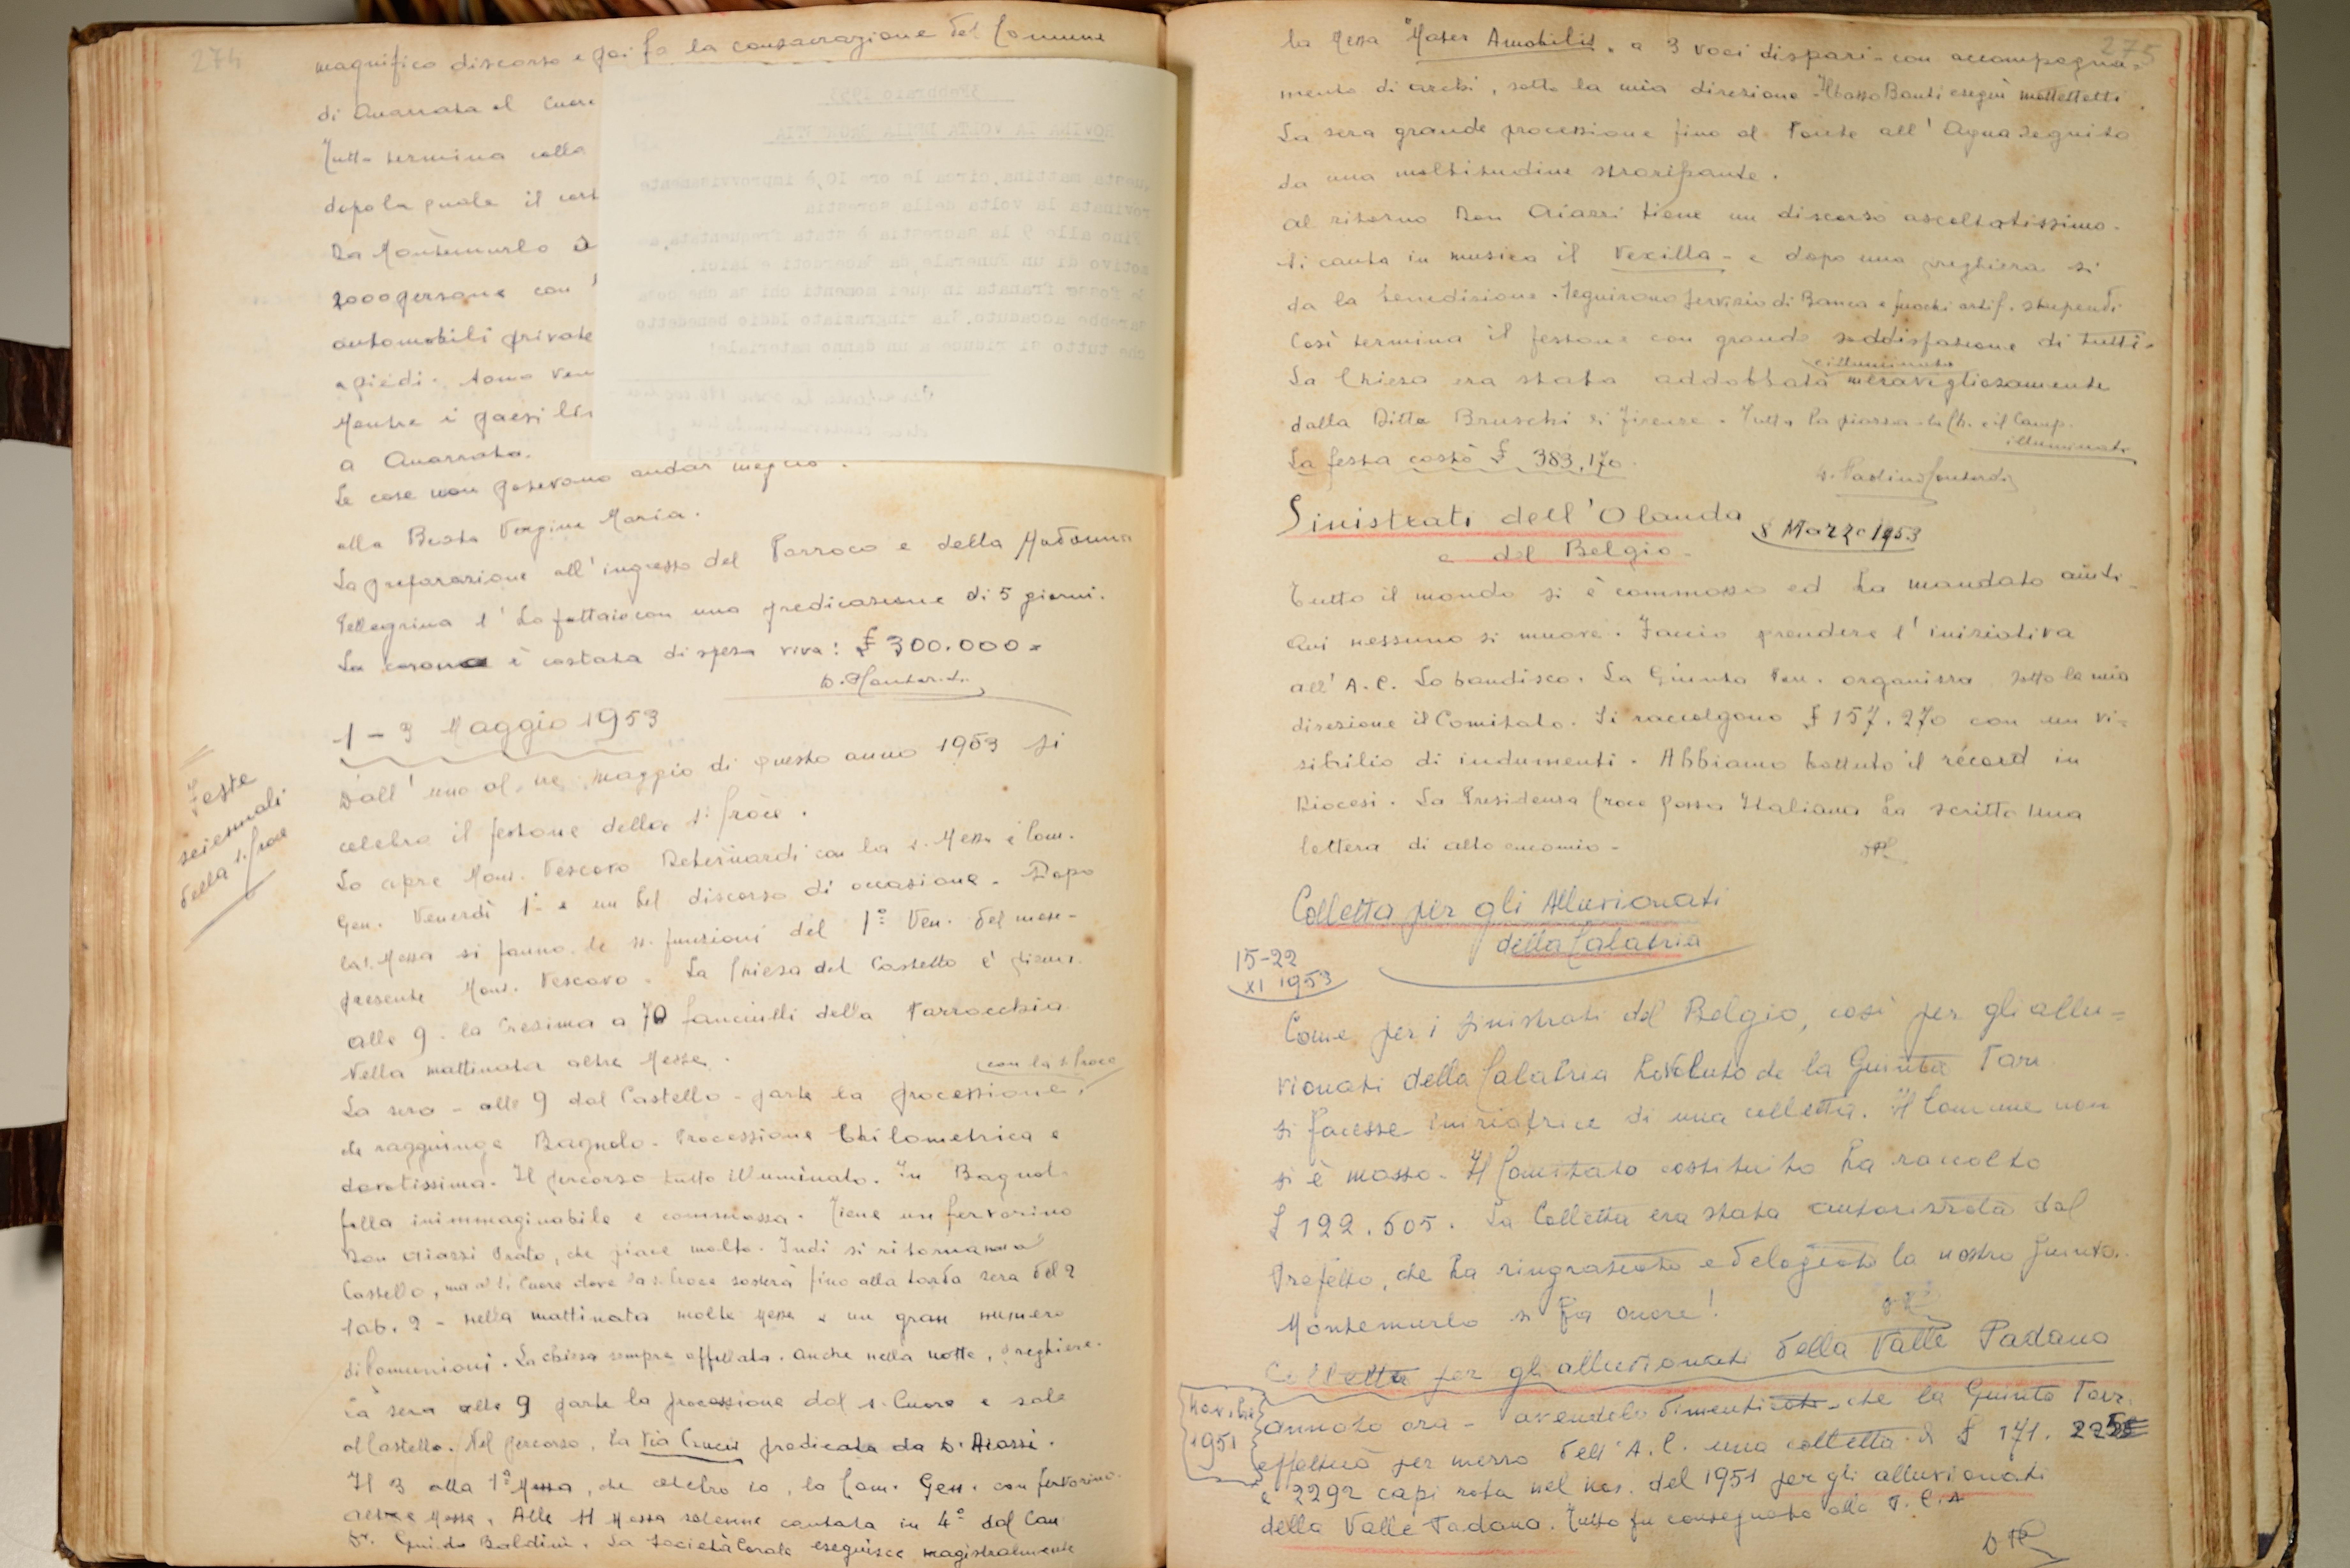 274
magnifico discorso e poi fa la consacrazione del Comune
di Quarrata al Cuore
Tutto termina colla
dopo la quale il
Da Montemurlo
2000 persone con
automobili private
a piedi.
Mentre i paesi
a Quarrata.
Le cose non potevano andar meglio.
alla Beata Vergine Maria.
La preparazione all'ingresso del Parroco e della Madonna
Pellegrina l'ho fatta io con una predicazione di 5 giorni.
La corona è costata di spesa viva: £ 300.000=
1-3 Maggio 1953
Feste
seiennali
della S. Croce
Dall'uno al tre maggio di questo anno 1953 si
celebra il festone della S. Croce.
Lo apre Mons. Vescovo Debernardi con la S. Messa e Com.
Gen. Venerdì 1° e un bel discorso di occasione. Dopo
la S. Messa si fanno le SS. funzioni del 1° Ven. del mese-
presente Mons. Vescovo. La Chiesa del Castello è piena.
alle 9. la Cresima a 70 fanciulli della Parrocchia
Nella mattinata altre Messe.
con la S. Croce
La sera - alle 9 dal Castello - parte la processione,
che raggiunge Bagnolo. Processione chilometrica e
devotissima. Il percorso tutto illuminato. In Bagnolo
folla inimmaginabile e commossa. Tiene un fervorino
Don Aiazzi Prato, che piace molto. Indi si ritorna non al
Castello, ma al S. Cuore dove la S. Croce sosterà fino alla tarda sera del 2
Sab. 2 - nella mattinata molte Messe e un gran numero
di Comunioni. La chiesa sempre affollata. Anche nella notte, preghiere.
La sera alle 9 parte la processione dal S. Cuore e sale
al Castello. Nel percorso, la Via Crucis predicata da D. Aiazzi.
Il 3 alla 1ª Messa, che celebro io, la Com. Gen. con fervorino.
altre Messe. Alle 11 Messa solenne cantata in 4° dal Can.
Dr. Guido Baldini. La Società Corale eseguisce magistralmente
3 Febbraio 1953
ROVINA LA VOLTA DELLA SAGRESTIA
Questa mattina, circa le ore 10, è improvvisamente
rovinata la volta della sacrestia
Fino alle 9 la sacrestia è stata frequentata, a
motivo di un Funerale, da Sacerdoti e laici.
Se fosse franata in quei momenti chi sa che cosa
sarebbe accaduto. Sia ringraziato Iddio benedetto
che tutto si riduce a un danno materiale!
275
la Messa "Mater Amabilis" a 3 voci dispari - con accompagna=
mento di archi, sotto la mia direzione - Il basso Banti eseguì mottettetti.
La sera grande processione fino al Ponte all'Agna seguito
da una moltitudine straripante.
Al ritorno Don Aiazzi tiene un discorso ascoltatissimo.
Si canta in musica il Vexilla - e dopo una preghiera si
dà la benedizione. Seguirono servizio di Banca e fuochi artif. stupendi
Così termina il festone con grande soddisfazione di tutti.
e illuminata
La Chiesa era stata addobbata meravigliosamente
dalla Ditta Bruschi di Firenze. Tutta la piazza - la Ch. e il Camp.
illuminati
La festa costò £ 383,170.
Sinistrati dell'Olanda
e del Belgio-
8 Marzo 1953
Tutto il mondo si è commosso ed ha mandato aiuti-
Qui nessuno si muove. Faccio prendere l'iniziativa
all'A.C. Lo bandisco. La Giunta Parr. organizza sotto la mia
direzione il Comitato. Si raccolgono £ 157.270 con un vi=
sibilio di indumenti. Abbiamo battuto il record in
Diocesi. La Presidenza Croce Rossa Italiana ha scritto una
lettera di alto encomio-
Colletta per gli Alluvionati
della Calabria
15-22
XI 1953
Come per i sinistrati del Belgio, così per gli allu=
vionati della Calabria ho voluto che la Giunta Parr.
si facesse iniziatrice di una colletta. Il Comune non
si è mosso. Il Comitato costituito ha raccolto
£ 122.505. La Colletta era stata autorizzata dal
Prefetto, che ha ringraziato ed elogiato la nostra giunta.
Montemurlo si fa onore!
Colletta per gli alluvionati della Valle Padana
Novibre
1951
Annoto ora - avendolo dimenticato - che la Giunta Parr.
effettuò per mezzo dell'A.C. una colletta di £ 171.
e 2292 capi roba nel nov. del 1951 per gli alluvionati
della Valle Padana. Tutto fu consegnato alla P.C.A